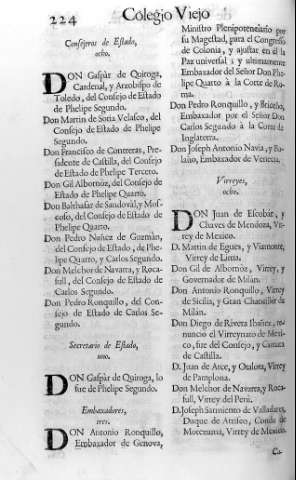 224
Colegio Viejo
Consejeros de Estado,
ocho.
DON Gaspàr de Quiroga,
Cardenal, y Arzobispo de
Toledo, del Consejo de Estado
de Phelipe Segundo.
Don Martin de Soria Velasco, del
Consejo de Estado de Phelipe
Quarto.
Don Francisco de Contreras, Pre-
sidente de Castilla, del Consejo
de Estado de Phelipe Tercero.
Don Gil Albornòz, del Consejo de
Estado de Phelipe Quarto.
Don Balthasar de Sandoval, y Mos-
coso, del Consejo de Estado de
Phelipe Quarto.
Don Pedro Nuñez de Guzmàn,
del Consejo de Estado, de Phe-
lipe Quarto, y Carlos Segundo.
Don Melchor de Navarra, y Roca-
full, del Consejo de Estado de
Carlos Segundo.
Don Pedro Ronquillo, del Con-
sejo de Estado de Carlos Se-
gundo.
Secretario de Estado,
uno.
DON Gaspàr de Quiroga, lo
fue de Phelipe Segundo.
Embaxadores,
tres.
DON Antonio Ronquillo,
Embaxador de Genova,
Ministro Plenipotenciario por
su Magestad, para el Congresso
de Colonia, y ajustar en èl la
Paz universal; y ultimamente
Embaxador del Señor Don Phe-
lipe Quarto à la Corte de Ro-
ma.
Don Pedro Ronquillo, y Briceño,
Embaxador por el Señor Don
Carlos Segundo à la Corte de
Inglaterra.
Don Joseph Antonio Navia, y Bo-
laño, Embaxador de Venecia.
Virreyes,
ocho.
DON Juan de Escobàr, y
Chaves de Mendoza, Vir-
rey de Mexico.
D. Martin de Eguès, y Viamonte,
Virrey de Lima.
Don Gil de Albornòz, Virrey, y
Governador de Milàn.
Don Antonio Ronquillo, Virrey
de Sicilia, y Gran Chanciller de
Milàn.
Don Diego de Rivera Ibañez, re-
nunciò el Virreynato de Mexi-
co, fue del Consejo, y Camara
de Castilla.
D. Juan de Arce, y Otalora, Virrey
de Pamplona.
Don Melchor de Navarra, y Roca-
full, Virrey del Perù.
D. Joseph Sarmiento de Valladares,
Duque de Atrisco, Conde de
Moctezuma, Virrey de Mexico.
Ca-